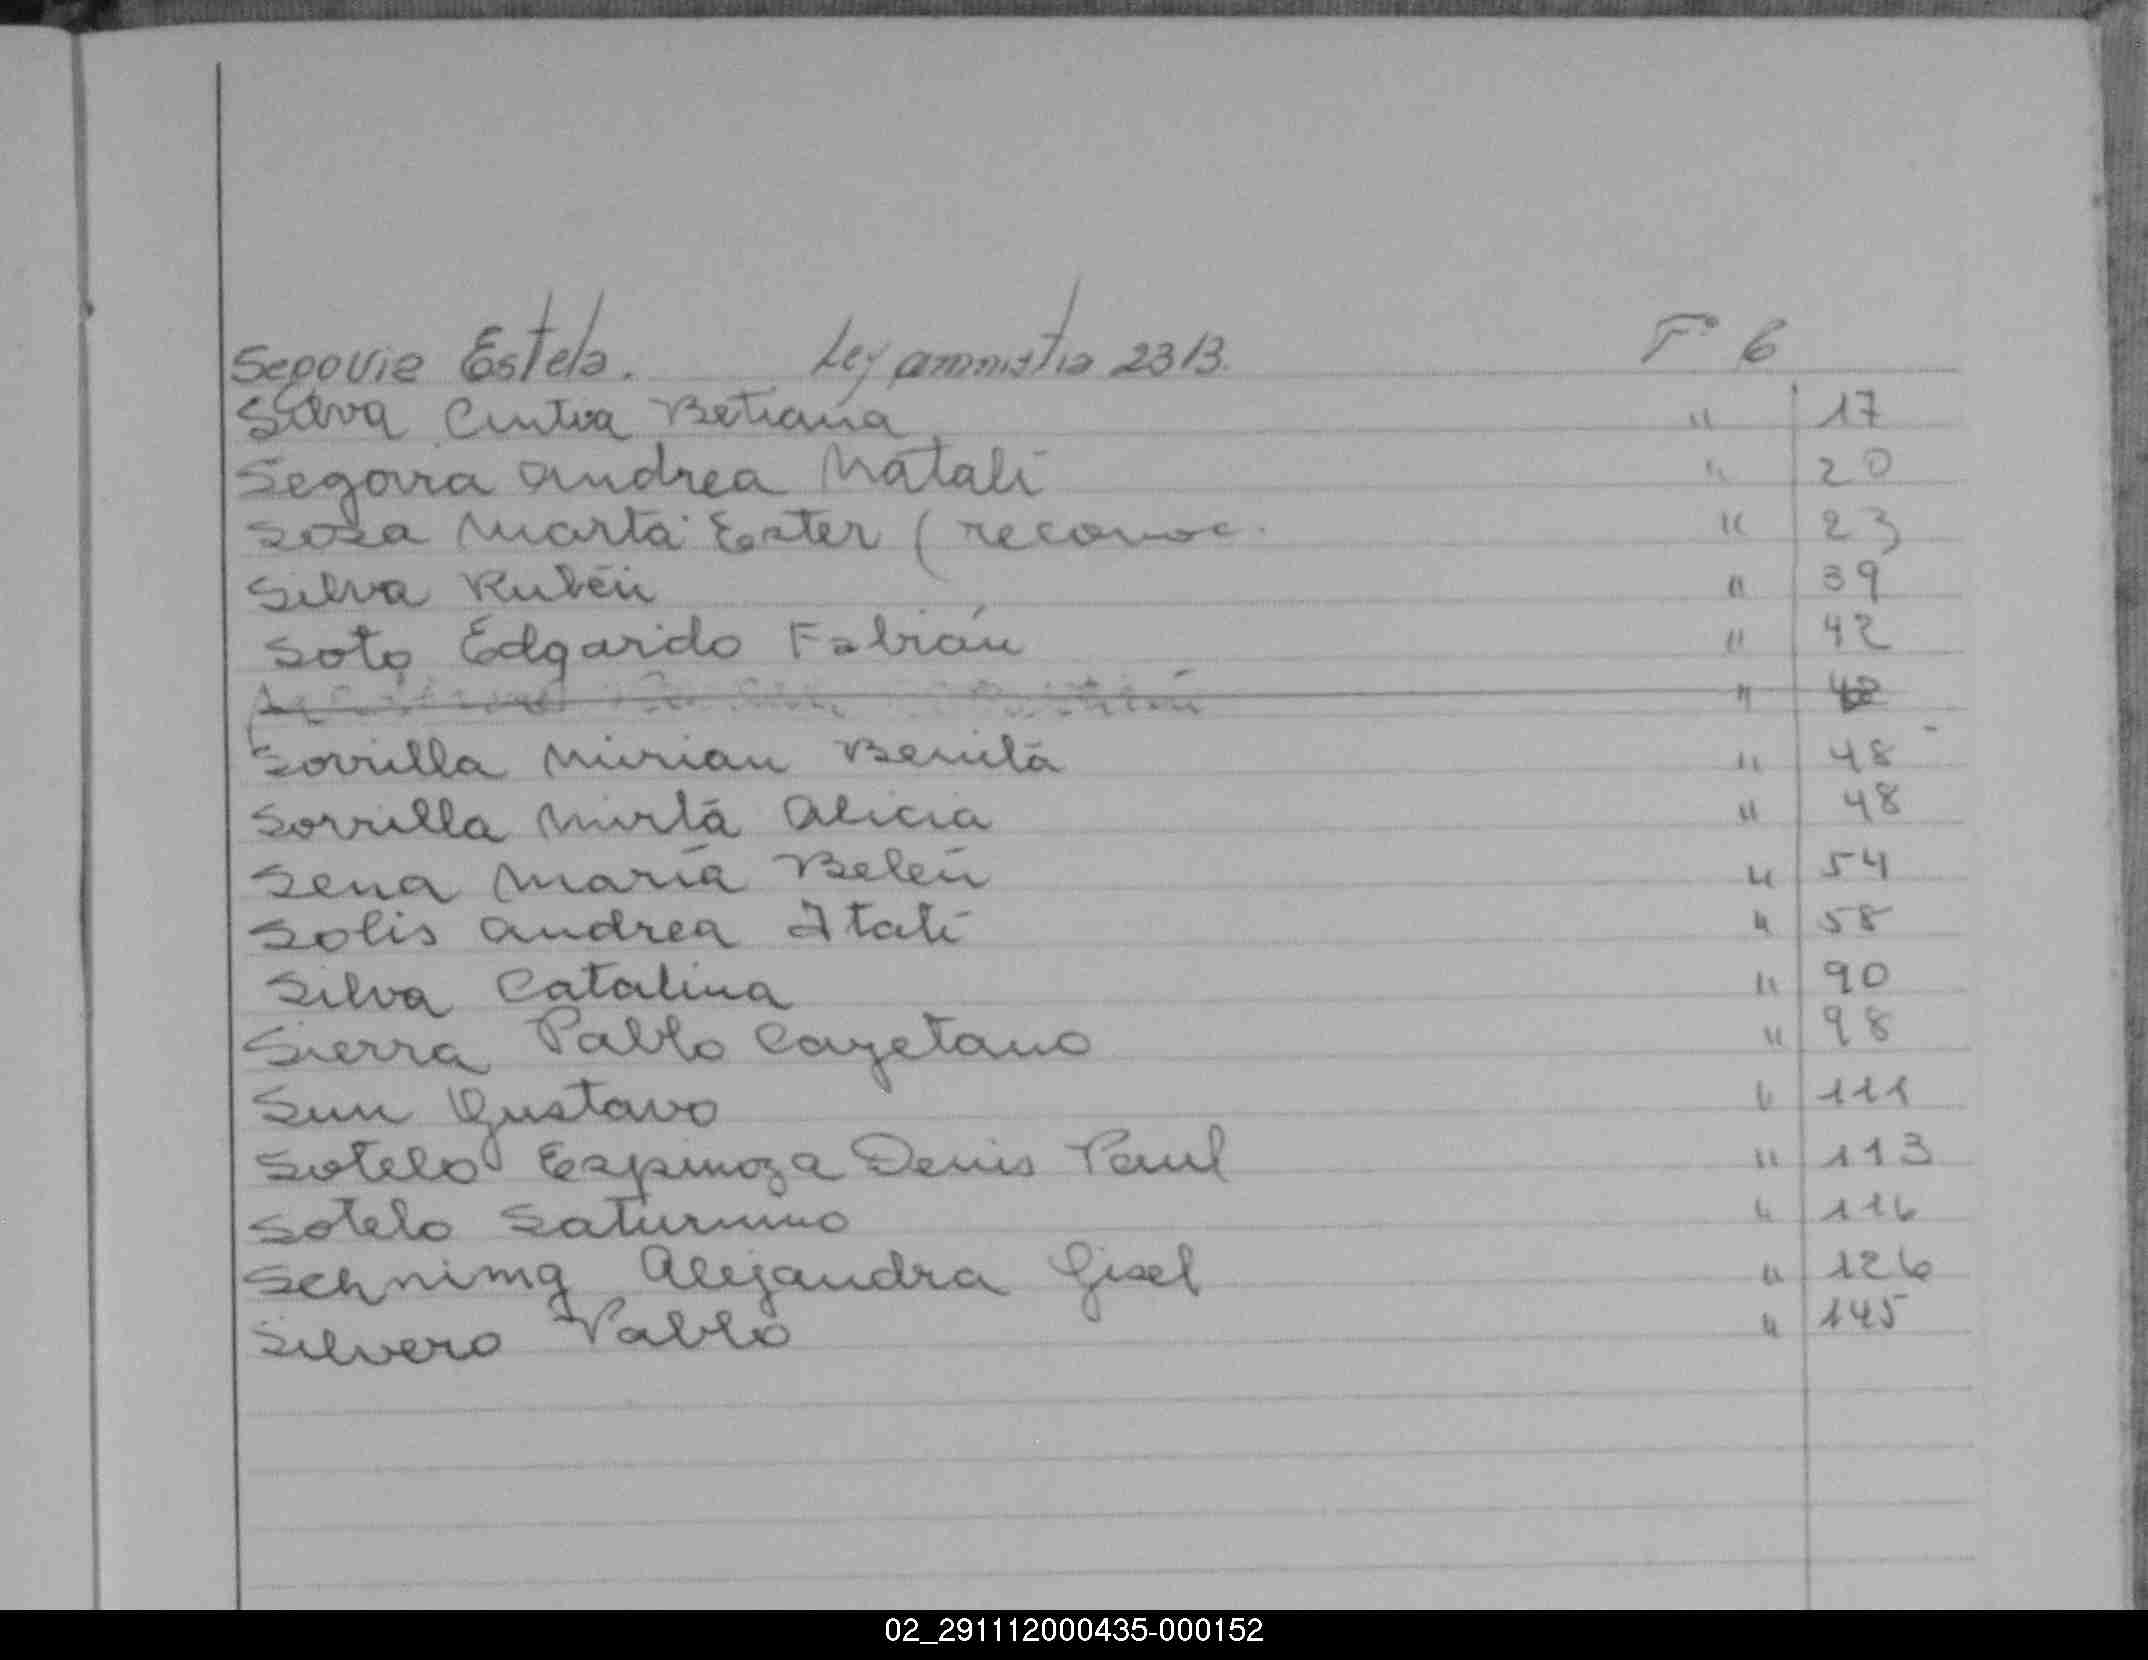 Segovia Estela. Ley amnistia 2313. F° 6
Silva Cintia Betiana " 17
Segovia Andrea Natali " 20
Sosa Marta Ester (reconoc. " 23
Silva Rubén " 39
Soto Edgardo Fabián " 42
"
Sorrilla Mirian Benita " 48
Sorrilla Mirta Alicia " 48
Sena María Belén " 54
Solis Andrea Itatí " 58
Silva Catalina " 90
Sierra Pablo Cayetano " 98
Sun Gustavo " 111
Sotelo Espinoza Denis Paul " 113
Sotelo Saturnino " 116
Schnimg Alejandra Gisel " 126
Silvero Pablo " 145
02_291112000435-000152